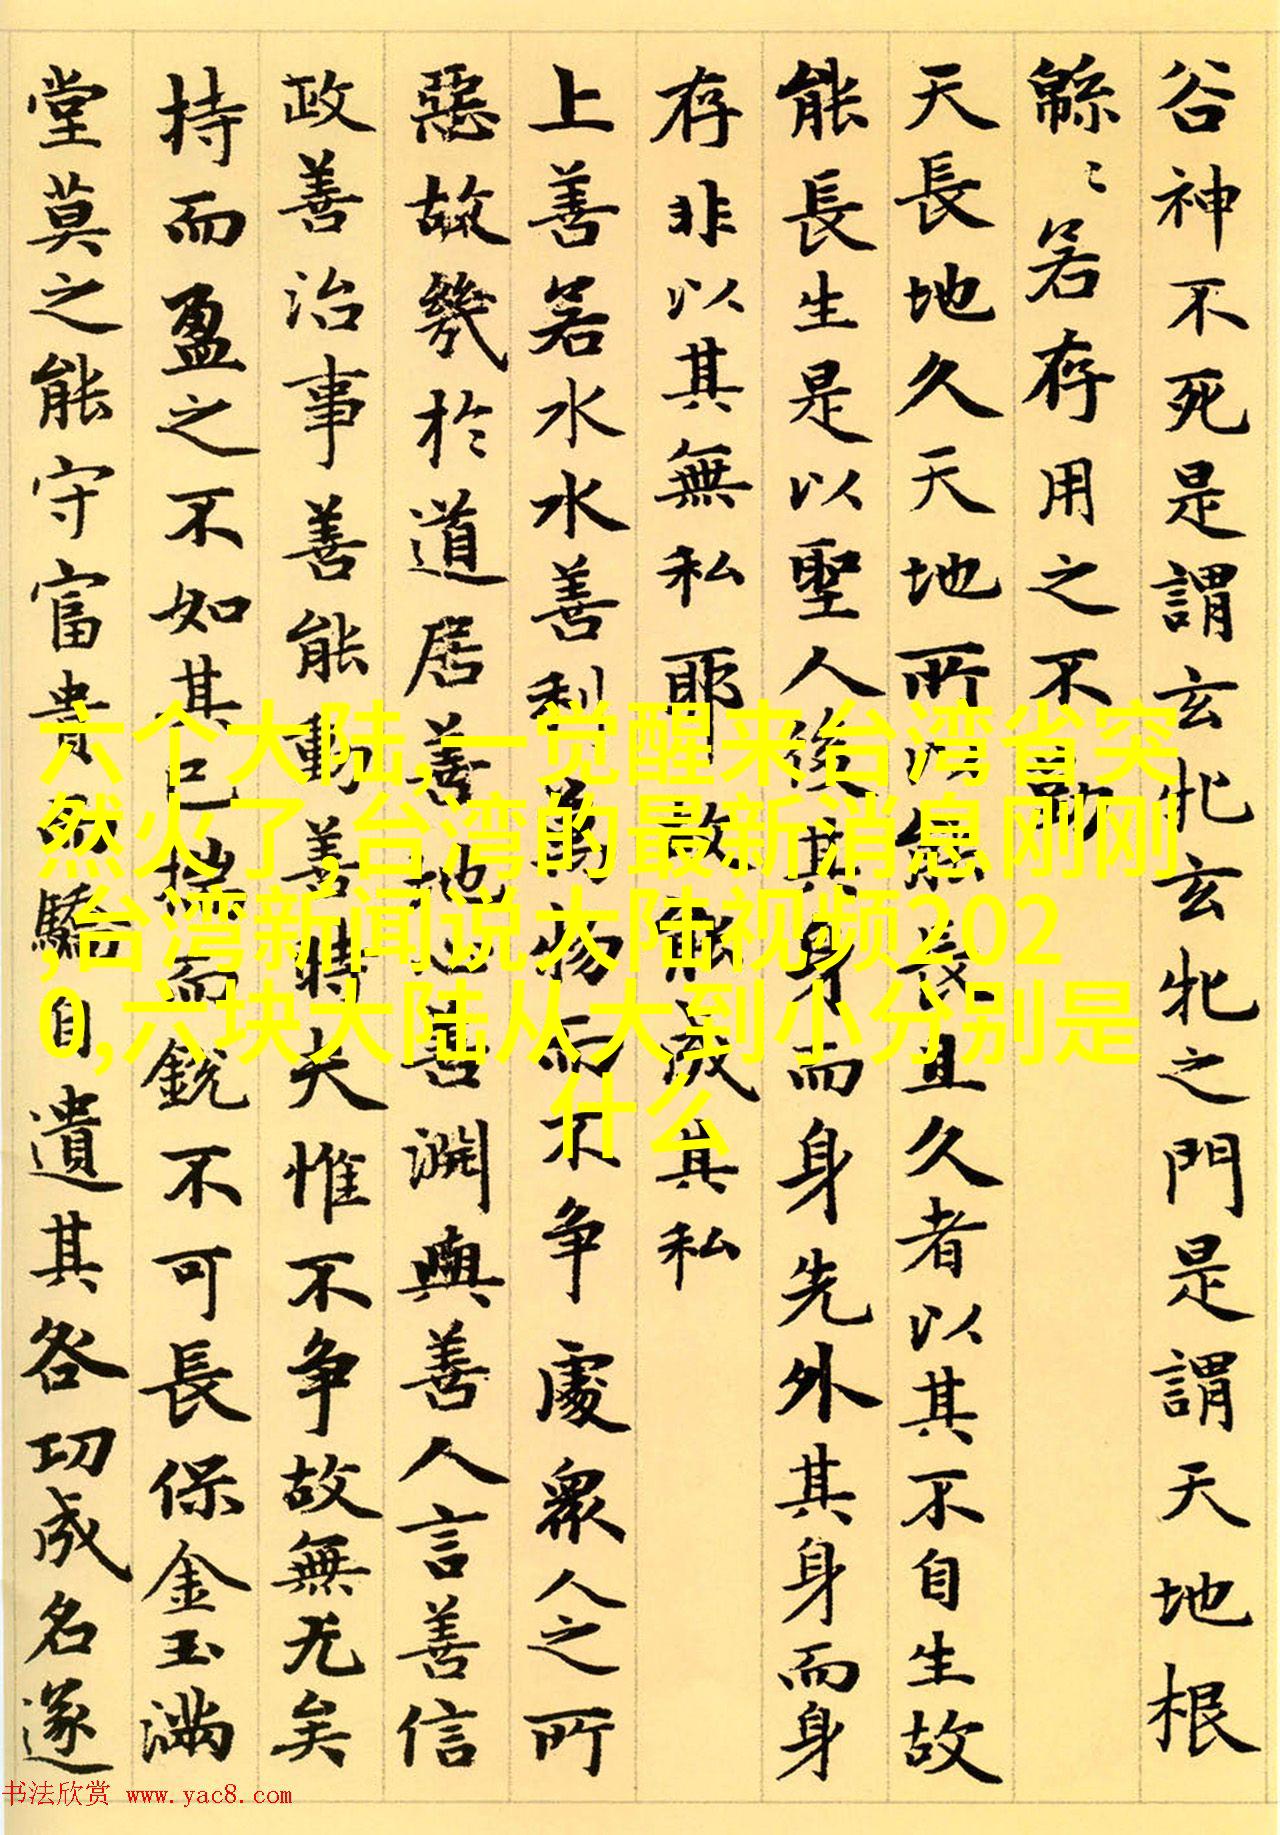 谷神不死是謂玄牝玄牝之門是謂天地根
緜〻若存用之不
天長地久天地所以能長且久者以其不自生故
能長生是以聖人後其身而身先外其身而身
存非以其無私耶故能成其私
上善若水水善利萬物而不争處衆人之所
惡故幾於道居善地心善淵與善人言善信
政善治事善能動善時夫惟不争故無尤矣
持而盈之不如其已揣而銳不可長保金玉滿
堂莫之能守富貴而驕自遺其咎功成名遂
六个大陆,一觉醒来台湾省突
然火了,台湾的最新消息刚刚
,台湾新闻说大陆视频202
0,六块大陆从大到小分别是
什么
书法欣赏 www.yac8.com